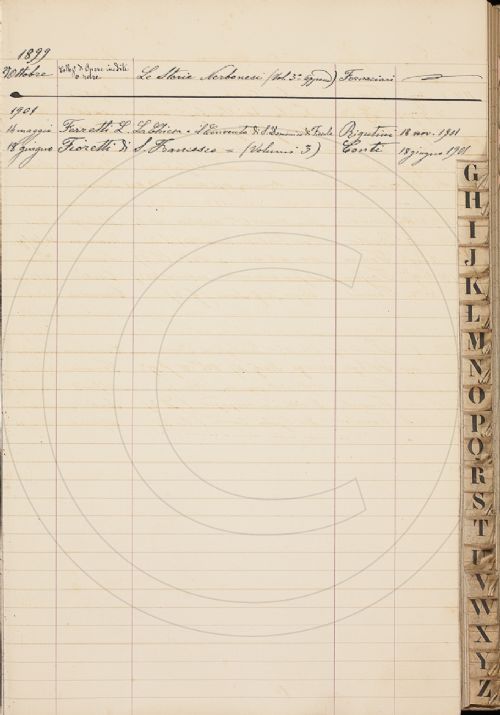 1899
Ottobre Collez. di Opere inedite o rare Le Storie Nerbonesi (Vol. 3° Append) Ferraciani
1901
14 maggio Ferretti L. La Chiesa e il Convento di S. Domenico di Fiesole Rigutini 18 nov. 1901
18 giugno Fioretti di S. Francesco = (Volumi 3) Conti 18 giugno 1901
G
H
I
J
K
L
M
N
O
P
Q
R
S
T
U
V
W
X
Y
Z